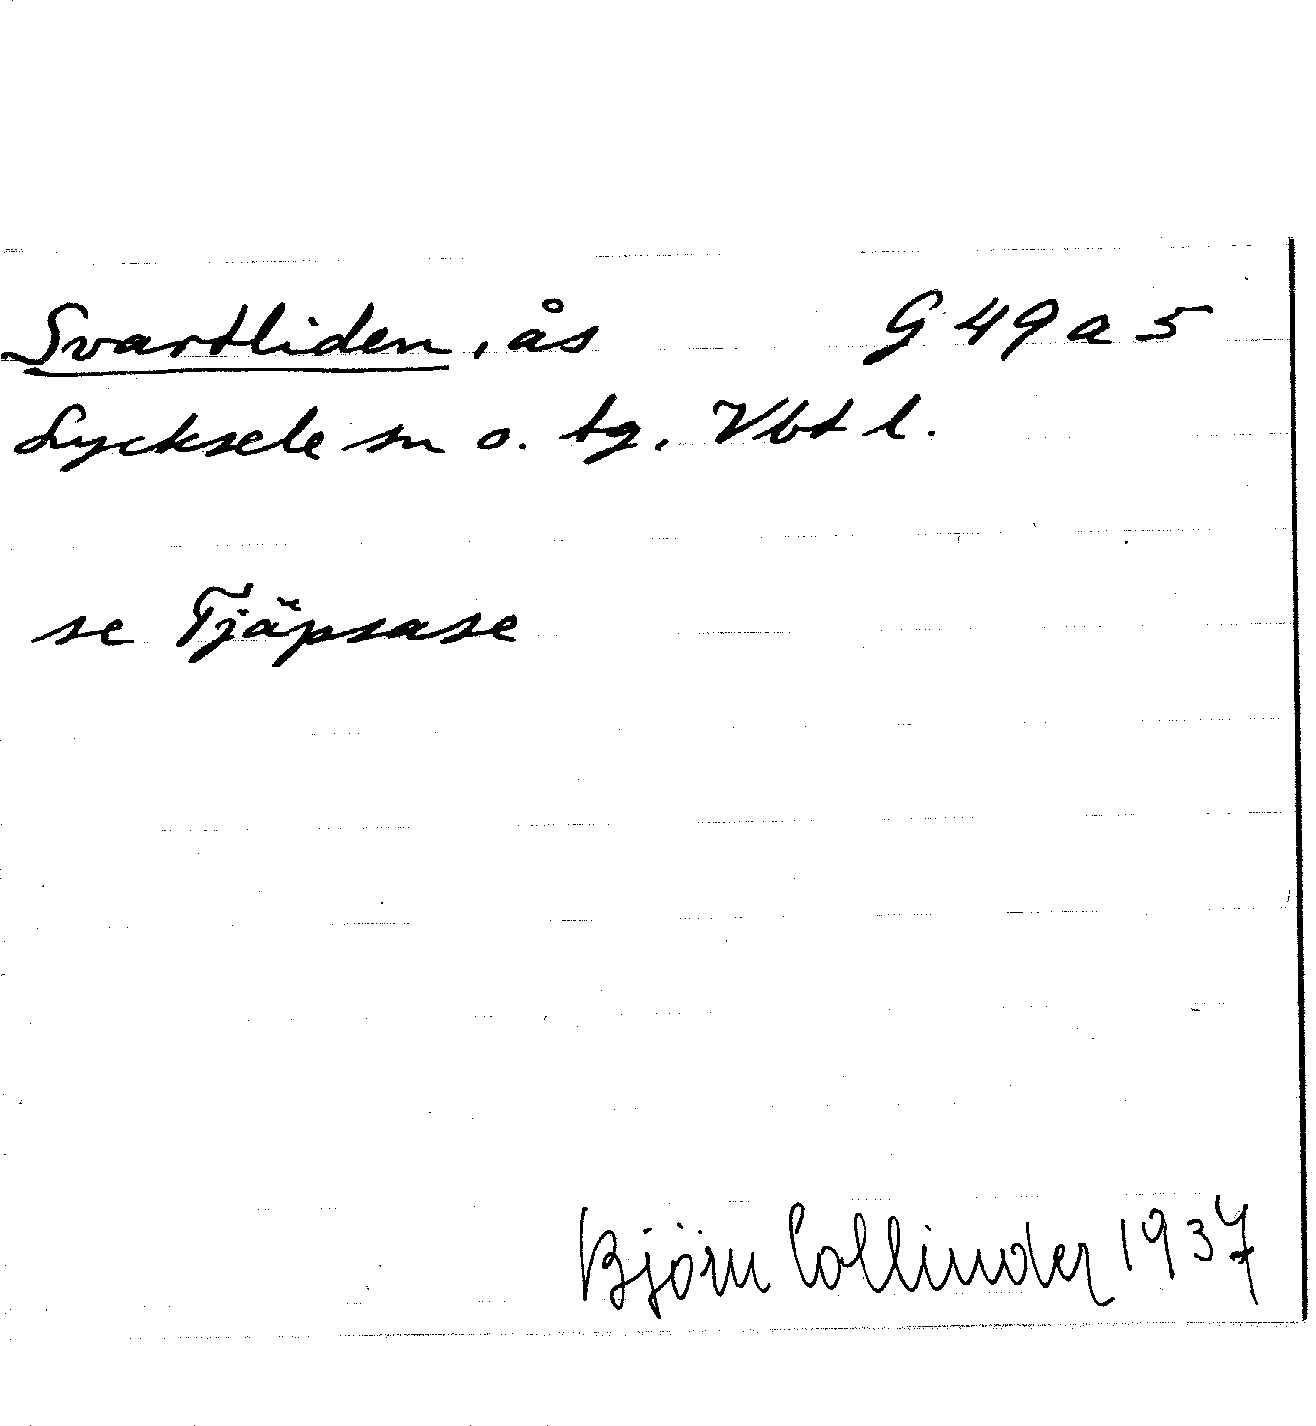 Svartliden, ås G 49 a 5
Lycksele sn o. tg, Vbt l.
se Tjäpsase
Björn Collinder 1937